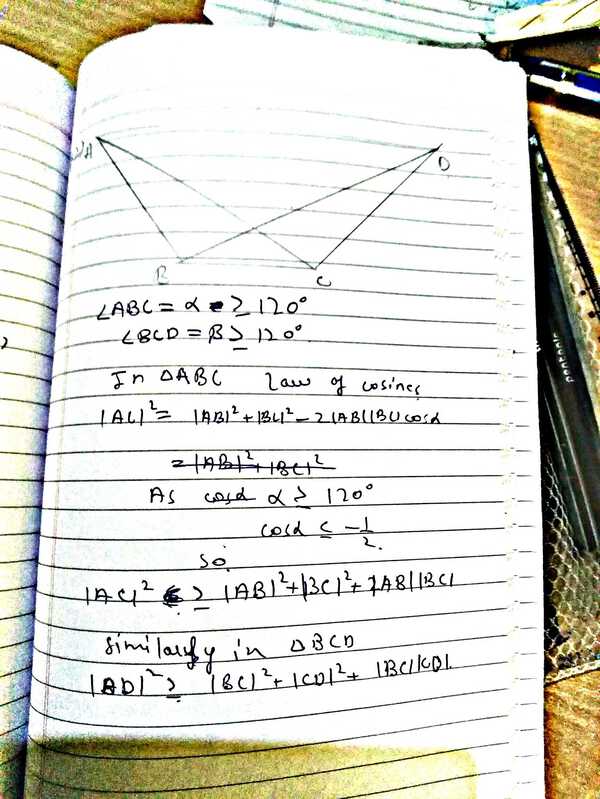 A
D
B
C
∠ABC = α ≥ 120°
∠BCD = β ≥ 120°.
In △ABC Law of cosines
|AC|² = |AB|² + |BC|² - 2|AB||BC| cosα
= |AB|² + |BC|²
As cosα α ≥ 120°
cosα ≤ -1/2.
So
|AC|² ≥ |AB|² + |BC|² + |AB||BC|
Similarly in △BCD
|AD|² ≥ |BC|² + |CD|² + |BC||CD|.